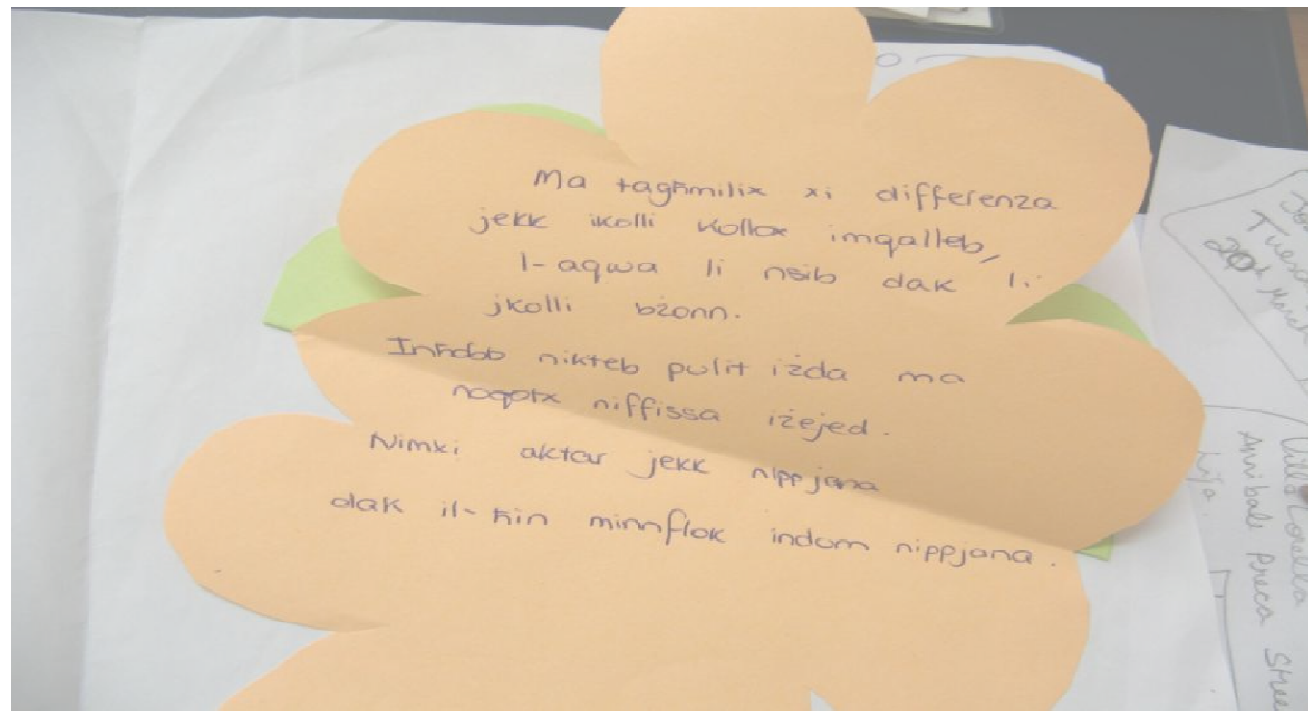 Ma tagħmilix xi differenza
jekk ikolli kollox imqalleb,
l-aqwa li nsib dak li
jkolli bżonn.
Inħobb nikteb pulit iżda ma
noqgħotx niffissa iżejed.
Nimxi aktar jekk nippjana
dak il-ħin minnflok indom nippjana.
Tuesd
20 March
Villa Lorela
Annibale Preca Stree
Lija.